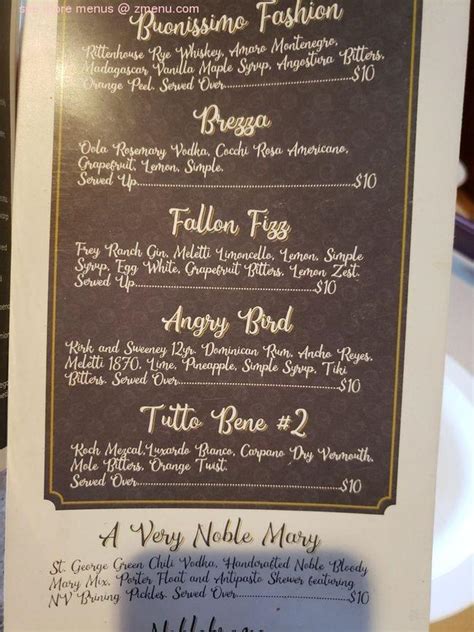 see more menus @ zmenu.com
Buonissimo Fashion
Rittenhouse Rye Whiskey, Amaro Montenegro,
Madagascar Vanilla Maple Syrup, Angostura Bitters,
Orange Peel. Served Over....................$10
Brezza
Oola Rosemary Vodka, Cocchi Rosa Americano,
Grapefruit, Lemon, Simple.
Served Up....................$10
Fallon Fizz
Frey Ranch Gin, Meletti Limoncello, Lemon, Simple
Syrup, Egg White, Grapefruit Bitters, Lemon Zest.
Served Up....................$10
Angry Bird
Kirk and Sweeney 12yr. Dominican Rum, Ancho Reyes,
Meletti 1870, Lime, Pineapple, Simple Syrup, Tiki
Bitters. Served Over....................$10
Tutto Bene #2
Roch Mezcal, Luxardo Bianco, Carpano Dry Vermouth,
Mole Bitters, Orange Twist.
Served Over....................$10
A Very Noble Mary
St. George Green Chili Vodka, Handcrafted Noble Bloody
Mary Mix, Porter Float and Antipasto Skewer featuring
NV Brining Pickles. Served Over....................$10